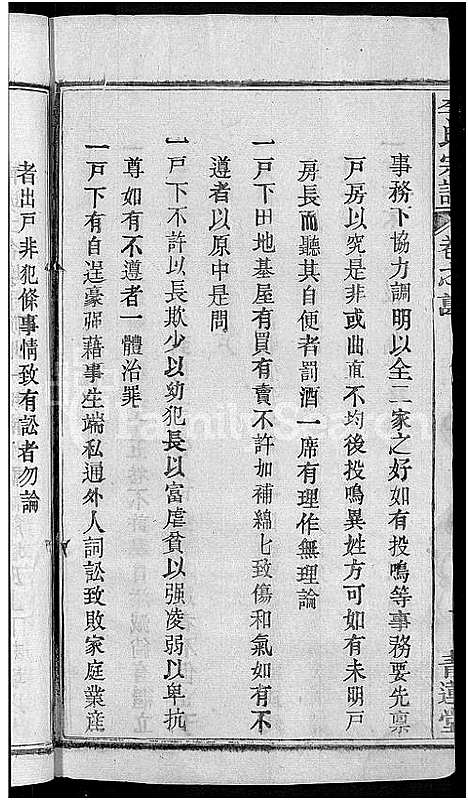 李氏宗譜
卷之
青蓮堂
事務下協力調明以全二家之好如有投鳴等事務要先稟
戶房以究是非或曲直不均後投鳴異姓方可如有未明戶
房長而聽其自便者罰酒一席有理作無理論
一戶下田地基屋有買有賣不許加補綿七致傷和氣如有不
遵者以原中是問
一戶下不許以長欺少以幼犯長以富虐貧以强凌弱以卑抗
尊如有不遵者一體治罪
一戶下有自逞豪强藉事生端私通外人詞訟致敗家庭業産
者出戶非犯條事情致有訟者勿論
FamilySearch